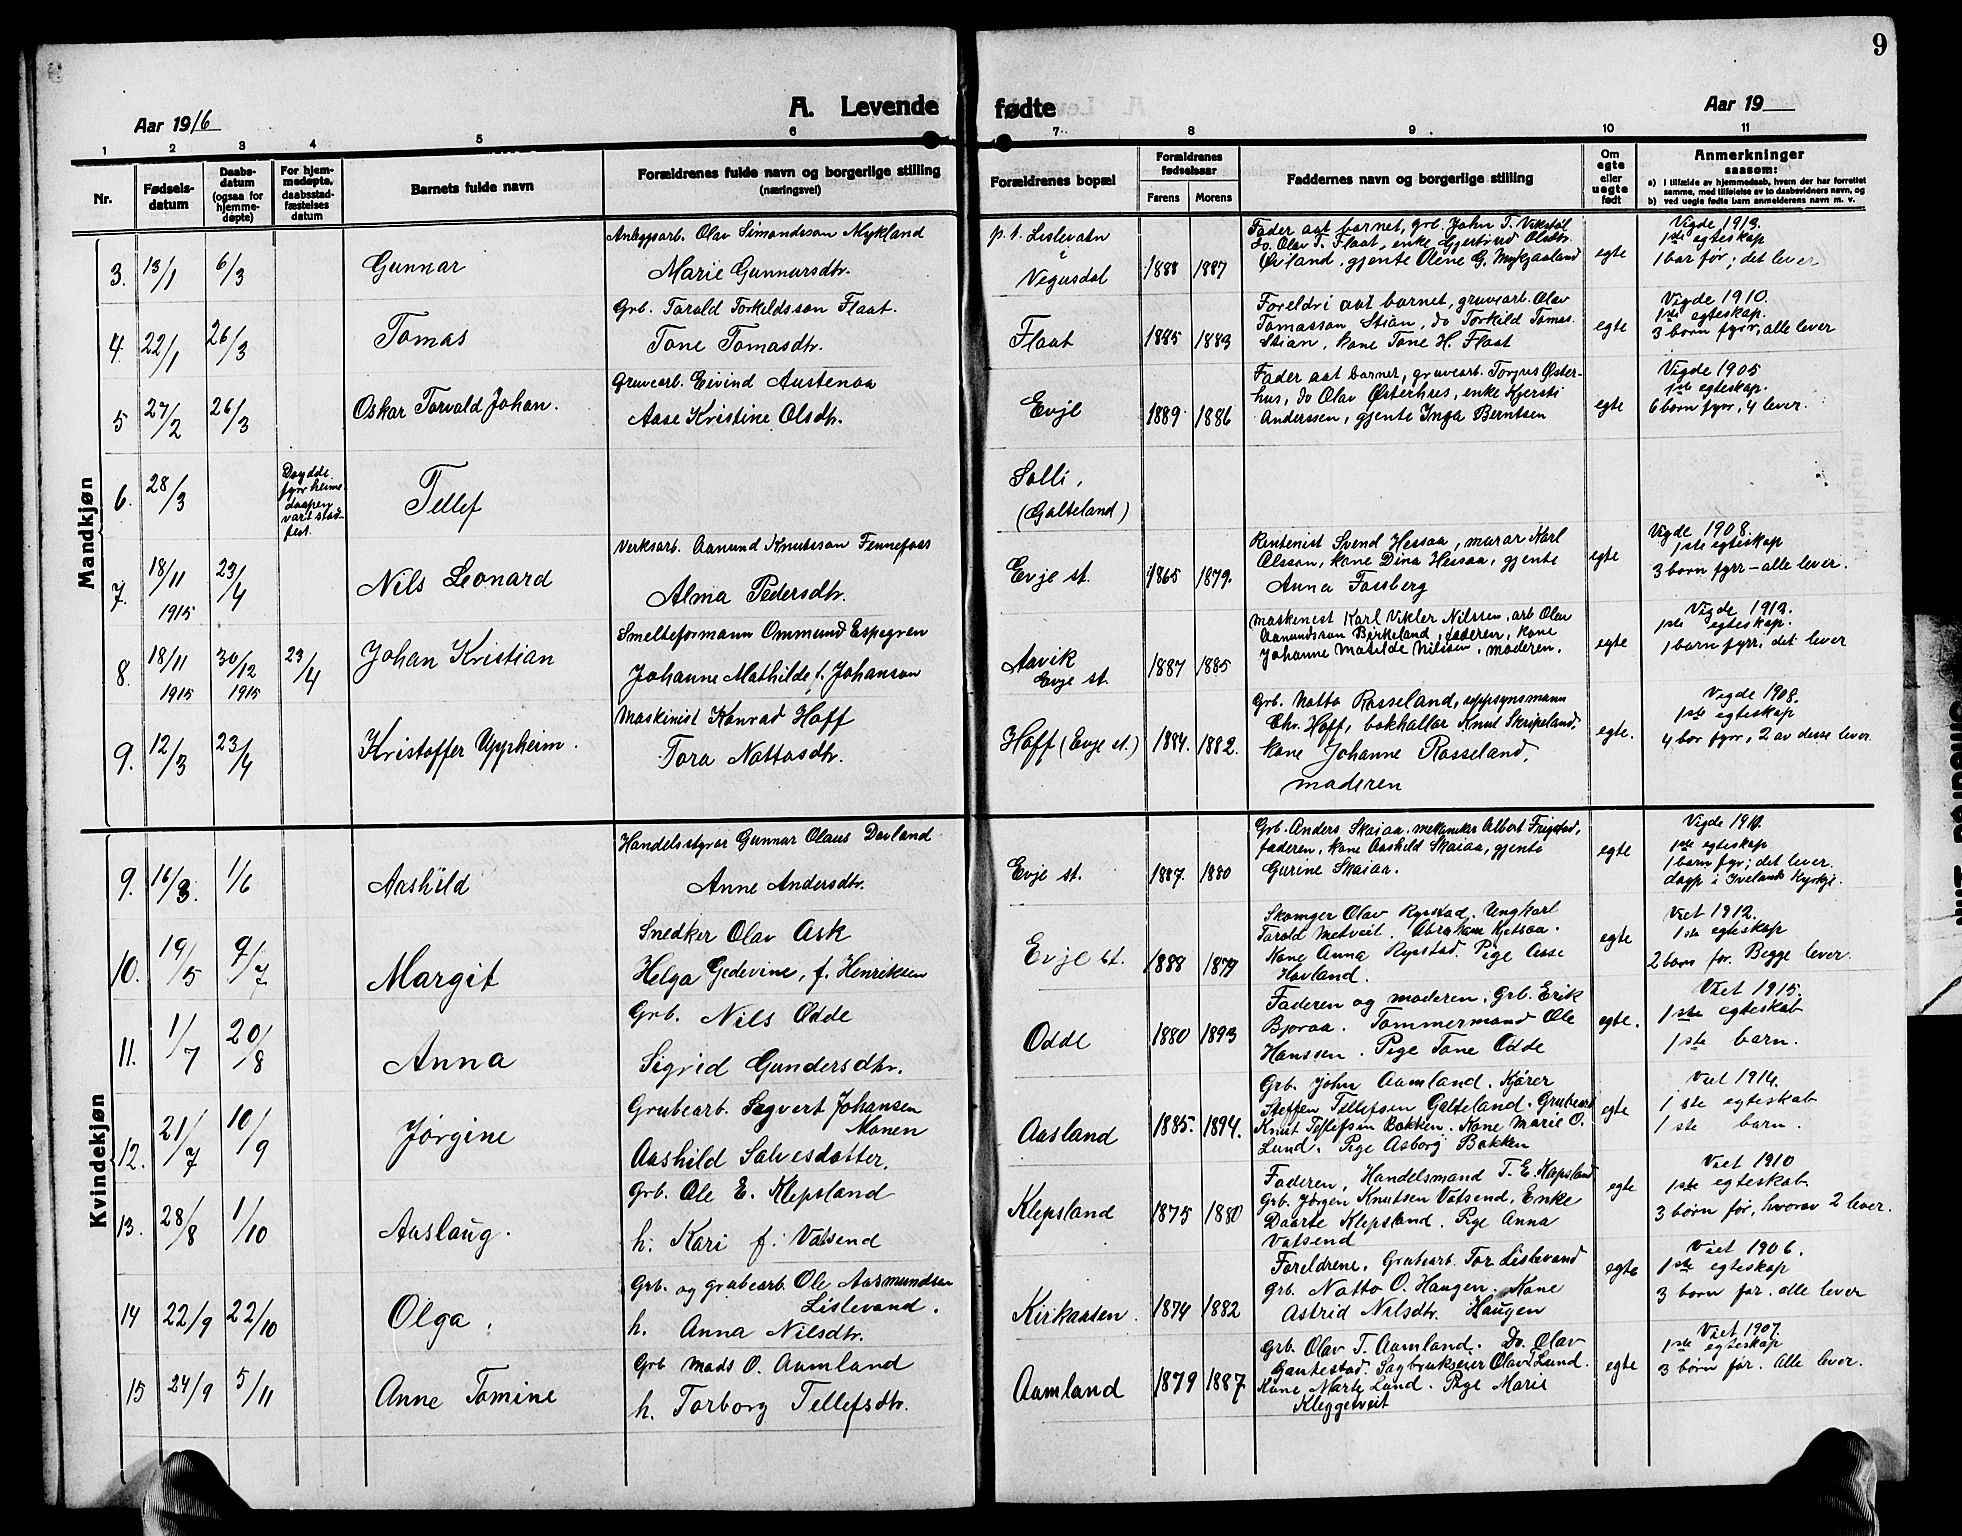 9
A. Levende fødte
Aar 1916
Aar 19
1 2 3 4 5 6 7 8 9 10 11
Nr.
Fødsels-
datum
Daabs-
datum
(ogsaa for
hjemme-
døpte)
For hjem-
medøpte,
daabsstad-
fæstelses
datum
Barnets fulde navn
Forældrenes fulde navn og borgerlige stilling
(næringsvei)
Forældrenes bopæl
Forældrenes
fødselsaar
Farens Morens
Faddernes navn og borgerlige stilling
Om
egte
eller
uegte
født
Anmerkninger
saasom:
a) i tilfælde av hjemmedaab, hvem der har forrettet
samme, med tilføielse av to daabsvidners navn, og
b) ved uegte fødte barn anmelderens navn m. v.
Mandkjøn
3. 13/1 6/3 Gunnar
Anlegsarb. Olav Simondsson Mykland
Marie Gunnarsdtr.
p. t. Lislevatn
i
Vegusdal
1888 1887
Fader aat barnet, grb. John T. Vikstøl
do. Olav T. Flaat, enke Gjertrud Olsdtr.
Øiland, gjente Olene G. Mykjaaland
egte
Vigde 1913.
1ste egteskap
1 bar før; det lever
4. 22/1 26/3 Tomas
Grb. Tarald Torkildsson Flaat.
Tone Tomasdtr.
Flaat
1885 1883
Foreldri aat barnet, gruvearb. Olav
Tomasson Stian, do Torkild Tomas.
Stian, kone Tone H. Flaat
egte
Vigde 1910.
1ste egteskap.
3 born fyrr, alle lever
5 27/2 26/3 Oskar Torvald Johan.
Gruvearb. Eivind Austenaa
Aase Kristine Olsdtr.
Evje
1889 1886
Fader aat barnet, gruvearb. Torgus Øster-
hus, do Olav Østerhus, enke Kjersti
Anderssen, gjente Inga Berntsen
egte
Vigde 1905
1ste egteskap.
6 born fyrr, 4 lever.
6. 28/3
Døydde
fyrr heime-
daapen
vart stad-
fest.
Tellef
Solli,
(Galteland)
7. 18/11 1915 23/4 Nils Leonard
Verksarb. Aanund Knutsson Fennefoss
Alma Pedersdtr.
Evje st.
1865 1879.
Rentenist Svend Hessaa, murar Karl
Olsson, kone Dina Hessaa, gjente
Anna Fossberg
egte
Vigde 1908.
1ste egteskap
3 born fyrr – alle lever.
8. 18/11 1915 30/12 1915 23/4 Johan Kristian
Smelteformann Ommund Espegren
Johanne Mathilde f. Johanson
Aavik
Evje st.
1887 1885
Maskenist Karl Vikler Nilssen, arb Olav
Aanundsson Birkeland, faderen, kone
Johanne Matilde Nilssen, moderen.
egte
Vigde 1913.
1ste egteskap.
1 barn fyrr, det lever
9. 12/3 23/4 Kristoffer Uppheim.
Maskinist Konrad Hoff
Tora Nattosdtr.
Hoff (Evje st.)
1884. 1882.
Grb. Natto Rosseland, uppsynsmann
Chr. Hoff, bokhallar Knut Skripeland,
kone Johanne Rosseland,
moderen
egte.
Vigde 1908.
1ste egteskap
4 bor fyrr, 2 av desse lever.
Kvindekjøn
9. 16/3. 1/6 Aashild
Handelsstyrar Gunnar Olaus Dovland
Anne Andersdtr.
Evje st.
1887. 1880
Grb. Anders Skaiaa, mekaniker Albert Frigstad,
faderen, kone Aashild Skaiaa, gjente
Gurine Skaiaa.
egte
1ste egteskap
1 barn fyr; det lever.
døyp i Ivelands Kyrkje.
10. 19/5 9/7 Margit
Snedker Olav Ask
Helga Gedevine, f. Henriksen
Evje st.
1888 1879
Skomger Olav Rysstad. Ungkarl
Tarald Metveit. Abraham Kjetsaa.
Kone Anna Rysstad. Pige Aase
Hovland.
egte
Viet 1912.
1ste egteskap
2 born før. Begge lever.
11. 1/7 20/8 Anna
Grb. Nils Odde
Sigrid Gundersdtr.
Odde
1880 1893
Faderen og moderen. Grb. Erik
Bjoraa. Tømmermand Ole
Hanssen. Pige Tone Odde
egte.
Viet 1915.
1ste egteskab
1ste barn.
12. 21/7 10/9 Jørgine
Grubearb. Sigvert Johansen
Monen
Aashild Salvesdatter.
Aasland
1885. 1894.
Grb. John Aamland. Kjører
Steffen Tellefsen Galteland. Grubearb
Knut Tellefsen Bakken. Kone Marie O.
Lund. Pige Asborg Bakken
egte
Viet 1914.
1ste egteskab
1ste barn.
13. 28/8 1/10 Aaslaug.
Grb. Ole E. Klepsland
h. Kari f. Vatsend
Klepsland
1875 1880
Faderen, Handelsmand T. E. Kapsland
Grb. Jørgen Knutsen Vatsend, Enke
Daarte Klepsland. Pige Anna
Vatsend
egte
Viet 1910
1ste egteskab
3 børn før, hvorav 2 lever.
14 22/9 22/10 Olga.
Grb. og grubearb. Ole Aasmundsen
Lislevand.
h. Anna Nilsdtr.
Kirkaasen.
1874 1882
Foreldrene. Grubearb. Tor Lislevand
Grb. Natto O. Haugen. Kone
Astrid Nilsdtr. Haugen
egte
Viet 1906.
1ste egteskap
3 born før. alle lever
15 24/9 5/11 Anne Tomine
Grb Mads O. Aamland
h. Torborg Tellefsdtr.
Aamland
1879 1887.
Grb. Olav T. Aamland. Do. Olav
Gautestad. Sagbrukseier Olav T Lund.
Kone Marte Lund. Pige Marie
Kleggetveit
egte
Viet 1907.
1ste egteskap
3 børn før. Alle lever.